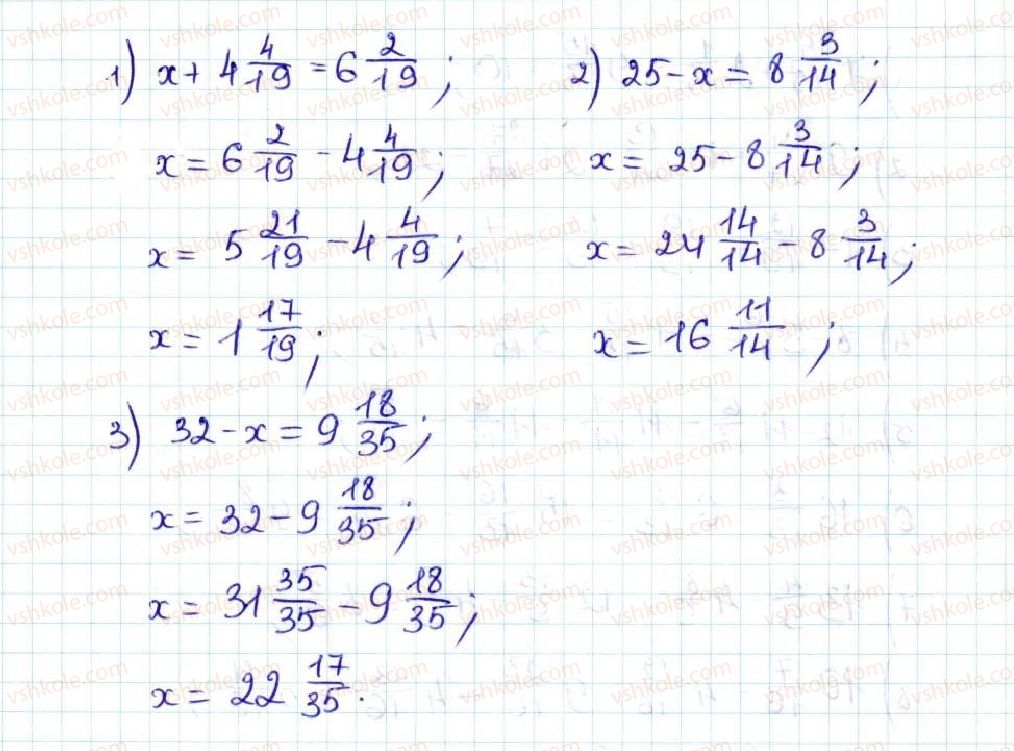 1) x + 4 4/19 = 6 2/19 ;
x = 6 2/19 - 4 4/19 ;
x = 5 21/19 - 4 4/19 ;
x = 1 17/19 ;
2) 25 - x = 8 3/14 ;
x = 25 - 8 3/14 ;
x = 24 14/14 - 8 3/14 ;
x = 16 11/14 ;
3) 32 - x = 9 18/35 ;
x = 32 - 9 18/35 ;
x = 31 35/35 - 9 18/35 ;
x = 22 17/35 .
vshkole.com